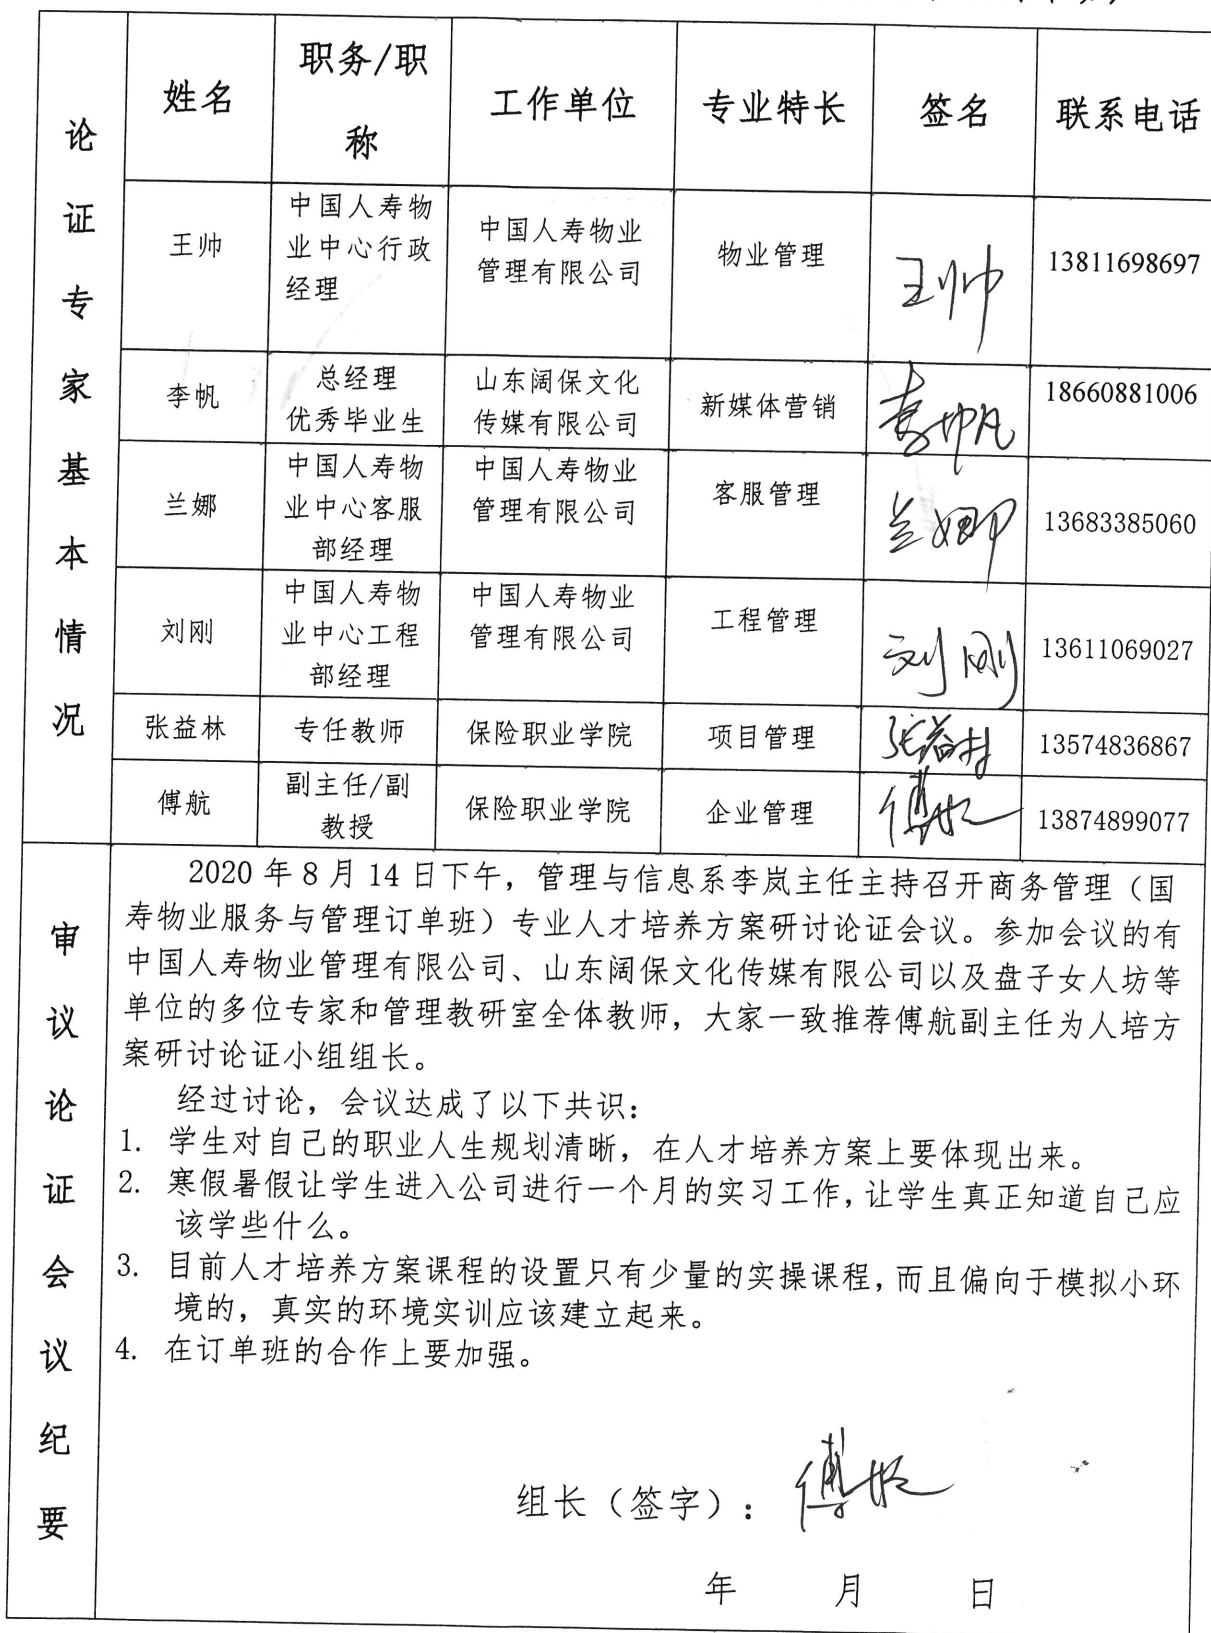 论证专家基本情况
姓名
职务/职
称
工作单位
专业特长
签名
联系电话
王帅
中国人寿物
业中心行政
经理
中国人寿物业
管理有限公司
物业管理
王帅
13811698697
李帆
总经理
优秀毕业生
山东阔保文化
传媒有限公司
新媒体营销
李帆
18660881006
兰娜
中国人寿物
业中心客服
部经理
中国人寿物业
管理有限公司
客服管理
兰娜
13683385060
刘刚
中国人寿物
业中心工程
部经理
中国人寿物业
管理有限公司
工程管理
刘刚
13611069027
张益林
专任教师
保险职业学院
项目管理
张益林
13574836867
傅航
副主任/副
教授
保险职业学院
企业管理
傅航
13874899077
审议论证会议纪要
2020 年 8 月 14 日下午，管理与信息系李岚主任主持召开商务管理（国
寿物业服务与管理订单班）专业人才培养方案研讨论证会议。参加会议的有
中国人寿物业管理有限公司、山东阔保文化传媒有限公司以及盘子女人坊等
单位的多位专家和管理教研室全体教师，大家一致推荐傅航副主任为人培方
案研讨论证小组组长。
经过讨论，会议达成了以下共识：
1. 学生对自己的职业人生规划清晰，在人才培养方案上要体现出来。
2. 寒假暑假让学生进入公司进行一个月的实习工作，让学生真正知道自己应
该学些什么。
3. 目前人才培养方案课程的设置只有少量的实操课程，而且偏向于模拟小环
境的，真实的环境实训应该建立起来。
4. 在订单班的合作上要加强。
组长（签字）：傅航
年 月 日